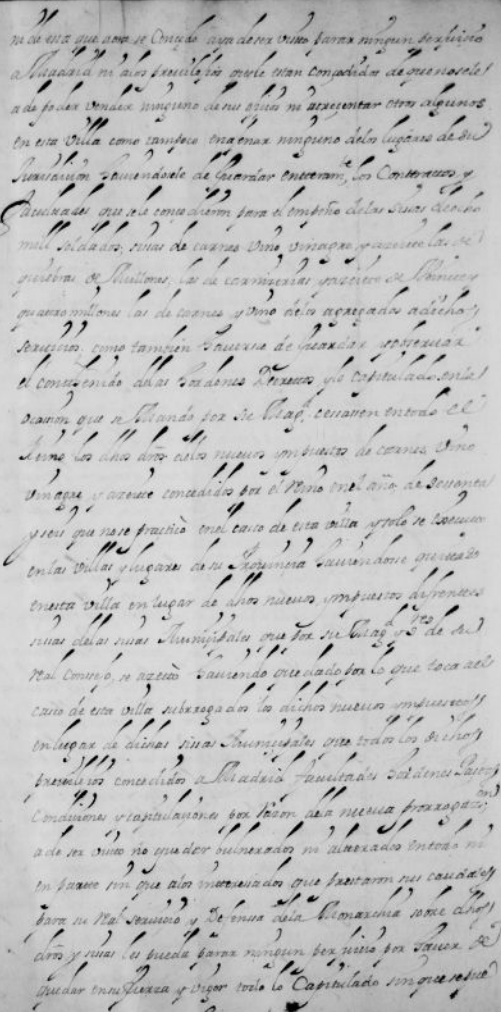 ni de esta que aora se Concede aya de ser visto parar ningun perjuicio
a Madrid ni a los previlejios que le estan concedidos de que no se le
a de poder vender ninguno de sus ofizios ni acrecentar otros algunos
en esta Villa como tampoco enaxenar ninguno de los lugares de su
Jurisdicion haviendosele de Guardar enteramte. los Contractos y
facultades que se le concedieron para el empeño de las sisas de ocho
mill soldados; sisas de carnes vino vinagre y azeite las de
quiebras de Millones; las de carnicerias y azeite de
quatro millones las de carnes y vino de los agregados a dicho
servicio, como tambien haverse de Guardar y observar
el contthenido de las hordenes Decretos y lo capitulado en la
ocasion que se Mando por su Magd. cesasen en todo el
Reino los dhos dros de los nuevos ympuestos de carnes vino
vinagre y azeite concedidos por el Reino en el año de sesenta
y seis que no se practicò en el casco de esta villa y solo se executo
en las Villas y lugares de su Provincia haviendose quedado
en esta villa en lugar de dhos nuevos ympuestos diferentes
sisas de las sisas Municipales que por su Magd. y Sres de su
Real Consejo, se azeptò haviendo quedado por lo que toca a el
casco de esta villa subrogados los dichos nuevos ympuestos
en lugar de dichas sisas Municipales que todos los dichos
previlejios concedidos a Madrid facultades hordenes Pactos
Condiciones y capitulaciones por razon de la nueva prorrogazon
a de ser visto no quedar vulnerados ni alterados en todo ni
en parte sin que a los interesados que prestaron sus caudales
para su Real servicio y Defensa de la Monarchia sobre dhos
dros y sisas les pueda parar ningun perjuicio por haver de
quedar en su fuerza y vigor todo lo Capitulado sin que se pue